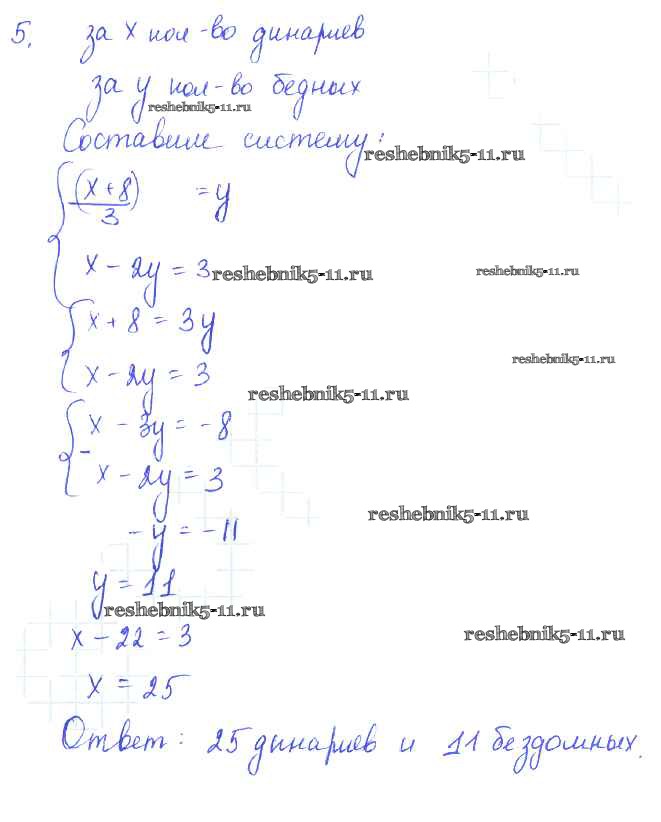 5. за x кол-во динариев
за y кол-во бедных
reshebnik5-11.ru
Составим систему:
reshebnik5-11.ru
(x+8)/3 = y
x - 2y = 3
reshebnik5-11.ru
reshebnik5-11.ru
x + 8 = 3y
x - 2y = 3
reshebnik5-11.ru
reshebnik5-11.ru
x - 3y = -8
- x - 2y = 3
reshebnik5-11.ru
-y = -11
y = 11
reshebnik5-11.ru
x - 22 = 3
reshebnik5-11.ru
x = 25
Ответ: 25 динариев и 11 бездомных.